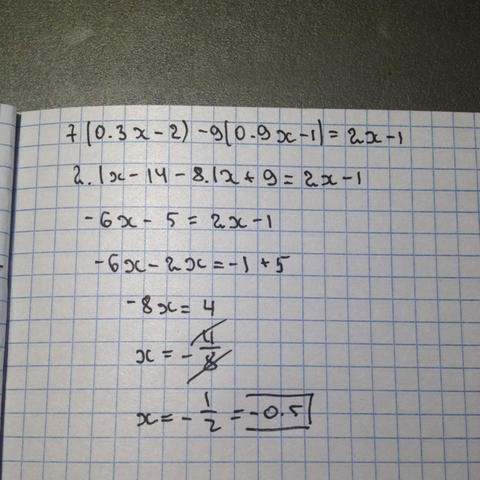 7(0.3x-2)-9(0.9x-1)=2x-1
2.1x-14-8.1x+9=2x-1
-6x-5=2x-1
-6x-2x=-1+5
-8x=4
x=-4/8
x=-1/2=-0.5